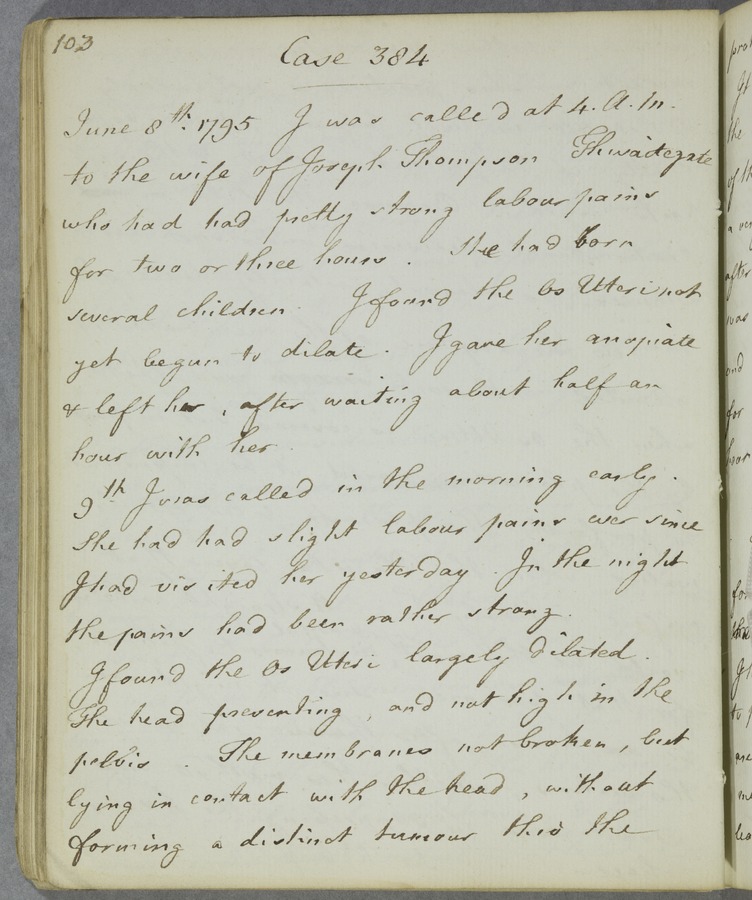 103
Case 384
June 8th. 1795 I was called at 4. A. m.
to the wife of Joseph Thompson Thwaitegate
who had had pretty strong labour pains
for two or three hours. She had born
several children. I found the Os Uteri not
yet begun to dilate. I gave her an opiate
& left her, after waiting about half an
hour with her.
9th I was called in the morning early.
She had had slight labour pains ever since
I had visited her yesterday. In the night
the pains had been rather strong.
I found the Os Uteri largely dilated.
The head presenting, and not high in the
pelvis. The membranes not broken, but
lying in contact with the head, without
forming a distinct tumour thro' the